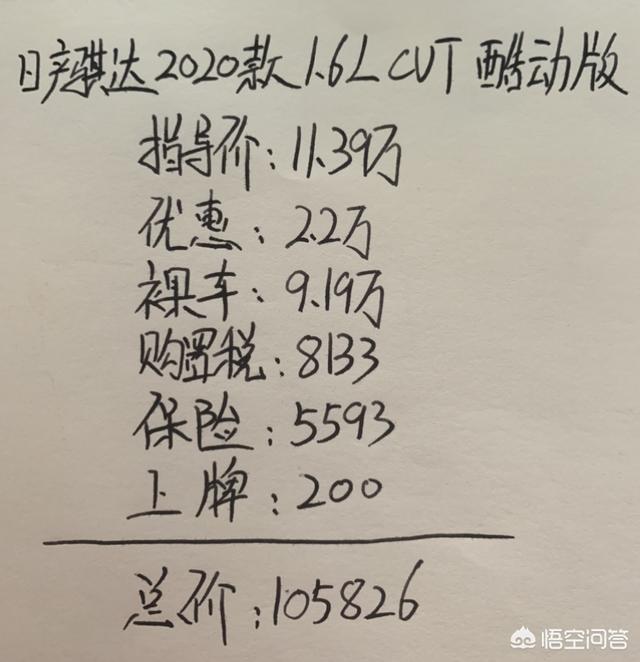 日产骐达2020款1.6L CVT 酷动版
指导价:11.39万
优惠:2.2万
裸车:9.19万
购置税:8133
保险:5593
上牌:200
总价:105826
悟空问答